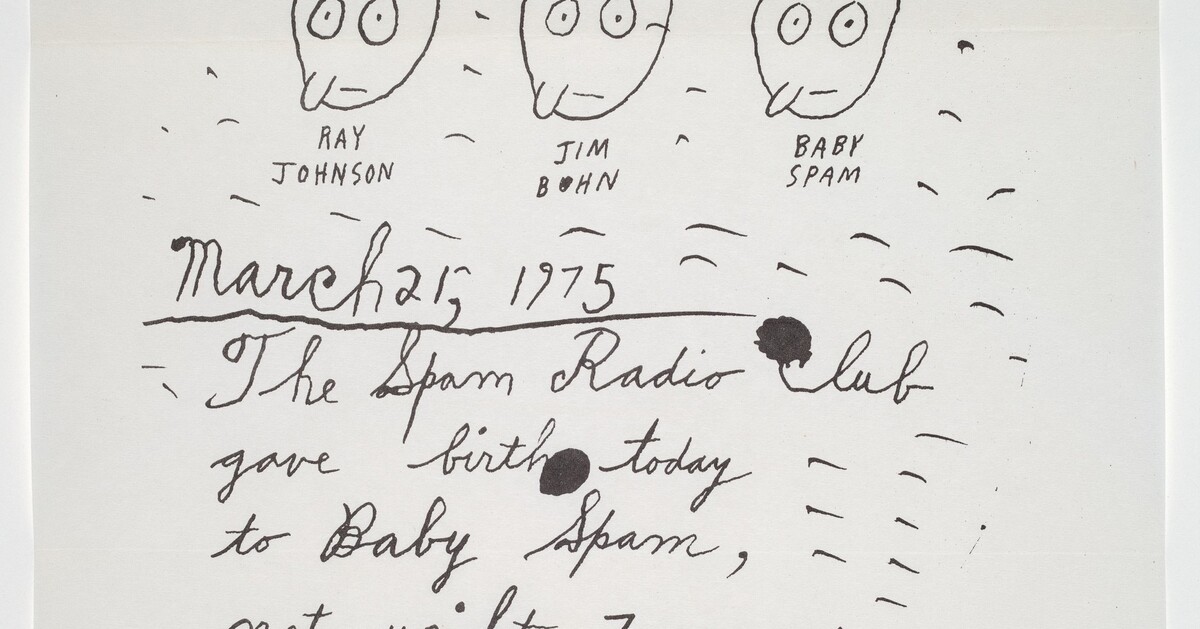 RAY
JOHNSON
JIM
BOHN
BABY
SPAM
March 25, 1975
The Spam Radio Club
gave birth today
to Baby Spam,